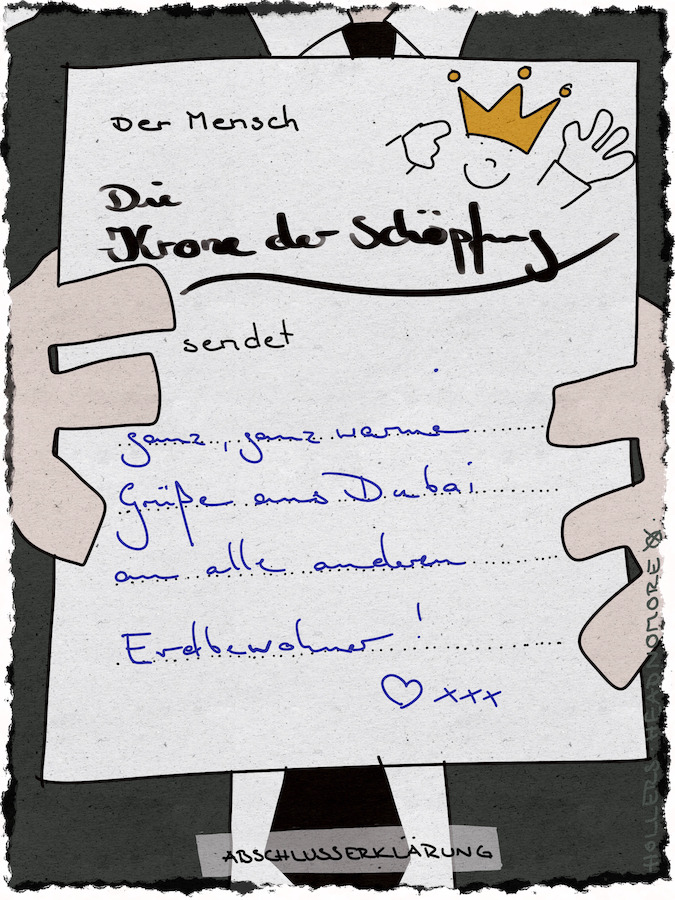 Der Mensch
Die
Krone der Schöpfung
sendet
ganz, ganz warme
Grüße aus Dubai
an alle anderen
Erdbewohner!
♡ xxx
ABSCHLUSSERKLÄRUNG
HOLLERSHEADNOMORE